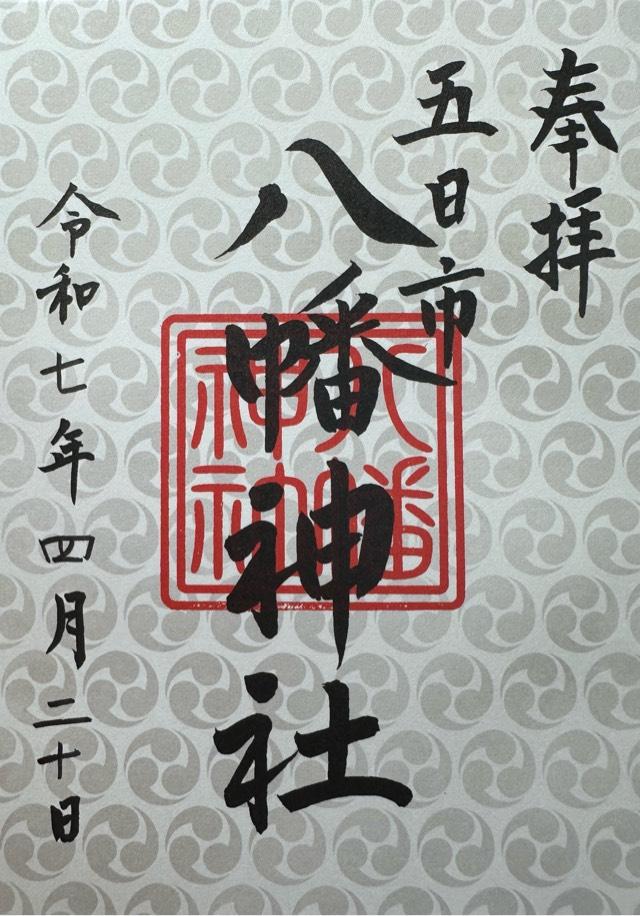 奉拝
五日市
八幡神社
八幡神社
令和七年四月二十日